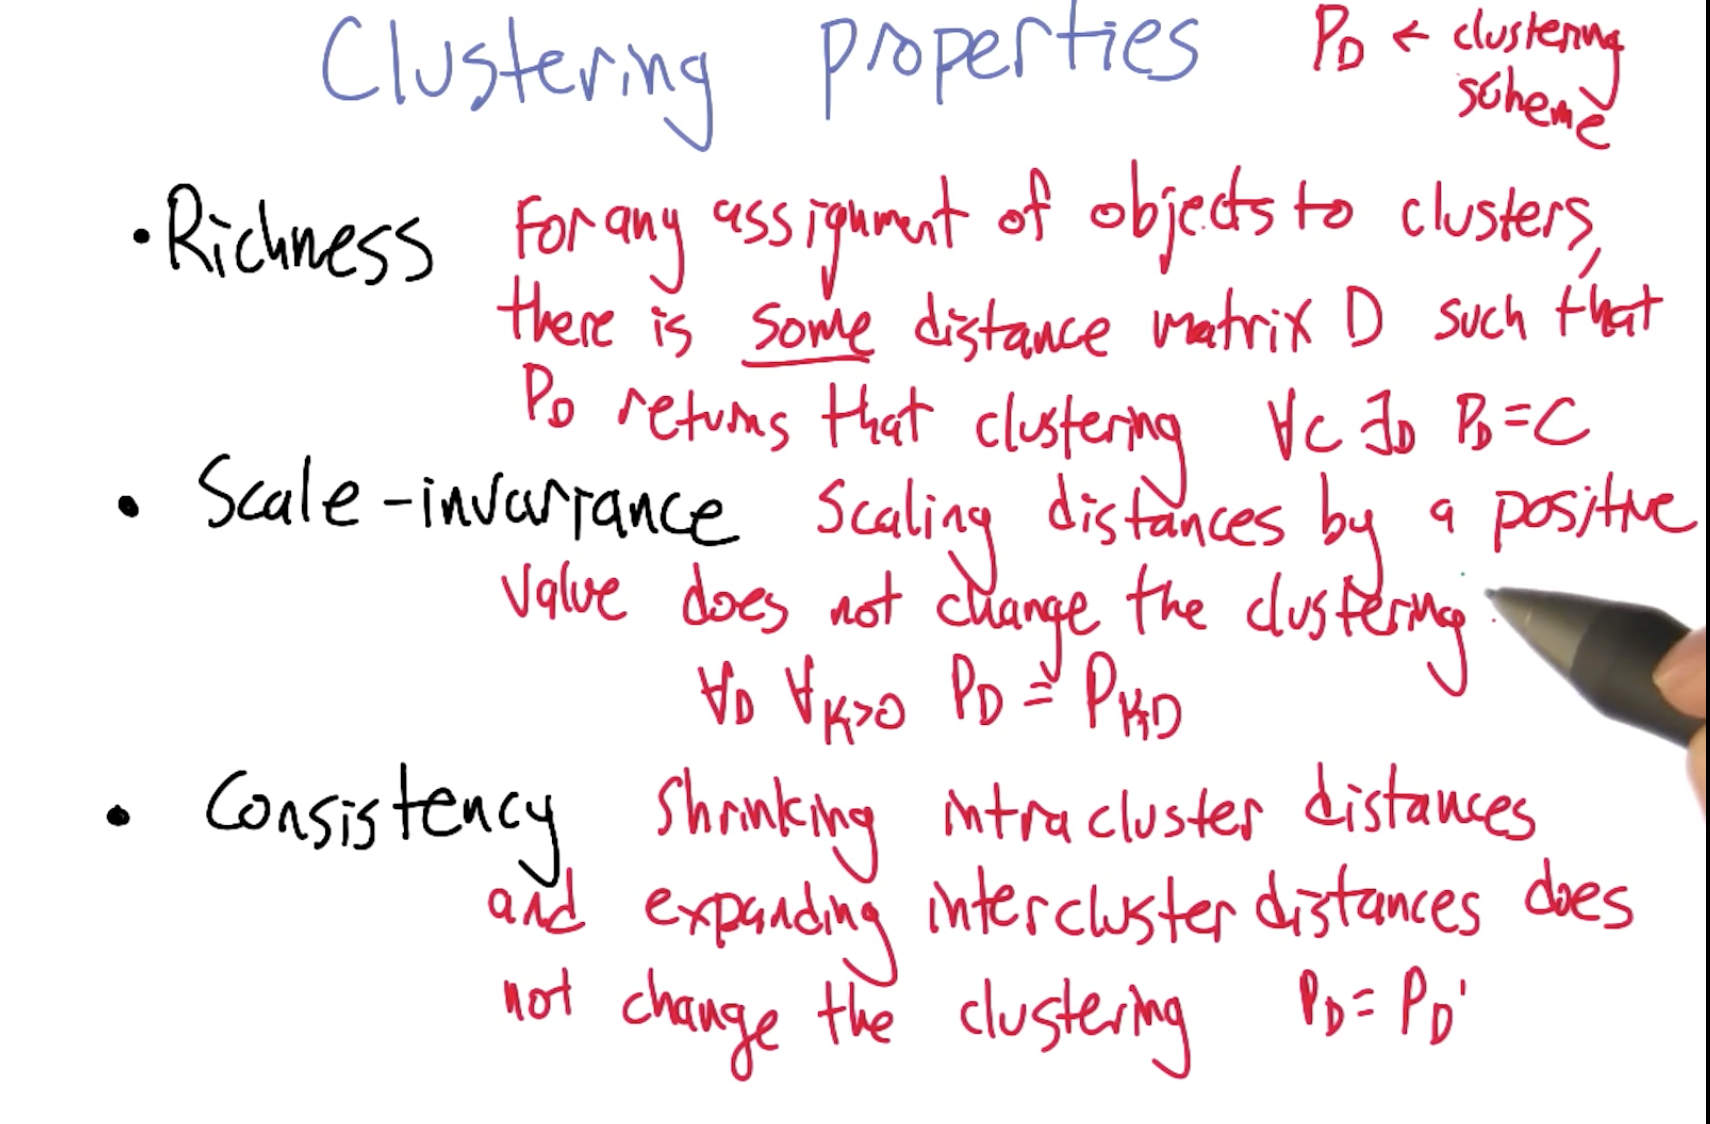 Clustering properties
P_D ← clustering
scheme
• Richness For any assignment of objects to clusters,
there is some distance matrix D such that
P_D returns that clustering ∀_C ∃_D P_D = C
• Scale-invariance Scaling distances by a positive
value does not change the clustering
∀_D ∀_K>0 P_D = P_KD
• Consistency Shrinking intracluster distances
and expanding intercluster distances does
not change the clustering P_D = P_D'